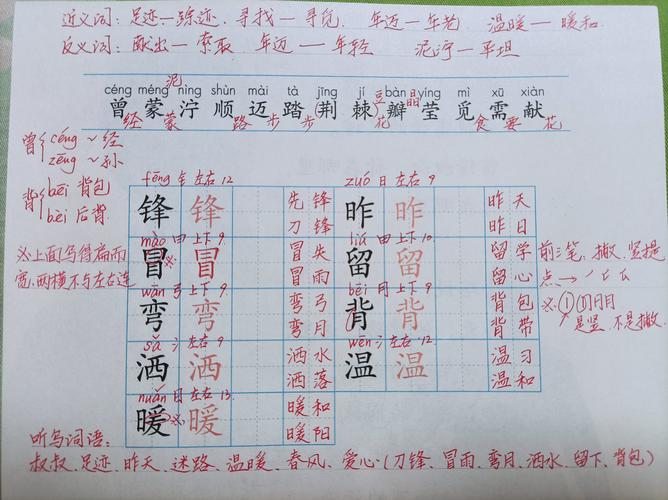 近义词：足迹—踪迹、寻找—寻觅、年迈—年老、温暖—暖和
反义词：献出—索取 年迈—年轻 泥泞—平坦
泥 豆 晶
céng méng nìng shùn mài tà jīng jí bàn yíng mì xū xiàn
曾 蒙 泞 顺 迈 踏 (荆 棘) 瓣 莹 觅 需 献
经 蒙 路 步 步 花 食 要 花
曾 céng ~ 经
zēng ~ 孙
背 bēi 背包
bèi 后背
fēng 钅 左右 12 zuó 日 左右 9
锋 锋 先锋 刀锋 昨 昨 昨天 昨日
mào 曰 上下 9 liú 田 上下 10
冒 ※ 冒 冒失 冒雨 留 留 留学 留心
wān 弓 上下 9 bēi 月 上下 9
弯 弯 弯弓 弯月 背 背 背包 背带
sǎ 氵 左右 9 wēn 氵 左右 12
洒 洒 洒水 洒落 温 温 温习 温和
nuǎn 日 左右 13
暖 ※ 暖 暖和 暖阳
※上面写得扁而
宽,两横不与左右连
前三笔、撇、竖提
点
※ ①
是竖,不是撇.
听写词语：
叔叔、足迹、昨天、迷路、温暖、春风、爱心(刀锋、冒雨、弯月、洒水、留下、背包)